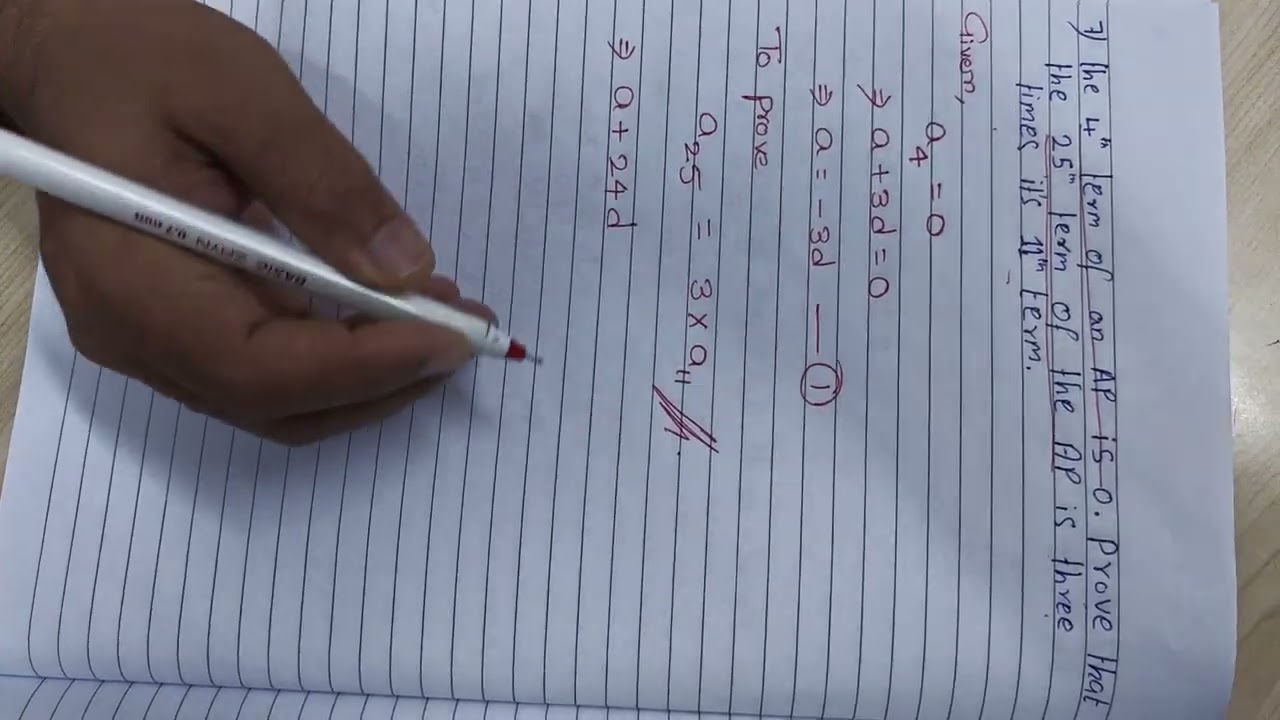 7) The 4th term of an AP is 0. Prove that
the 25th term of the AP is three
times it's 11th term.
Given,
a4 = 0
⇒ a + 3d = 0
⇒ a = - 3d — ①
To prove
a25 = 3 × a11
⇒ a + 24d
BASIC